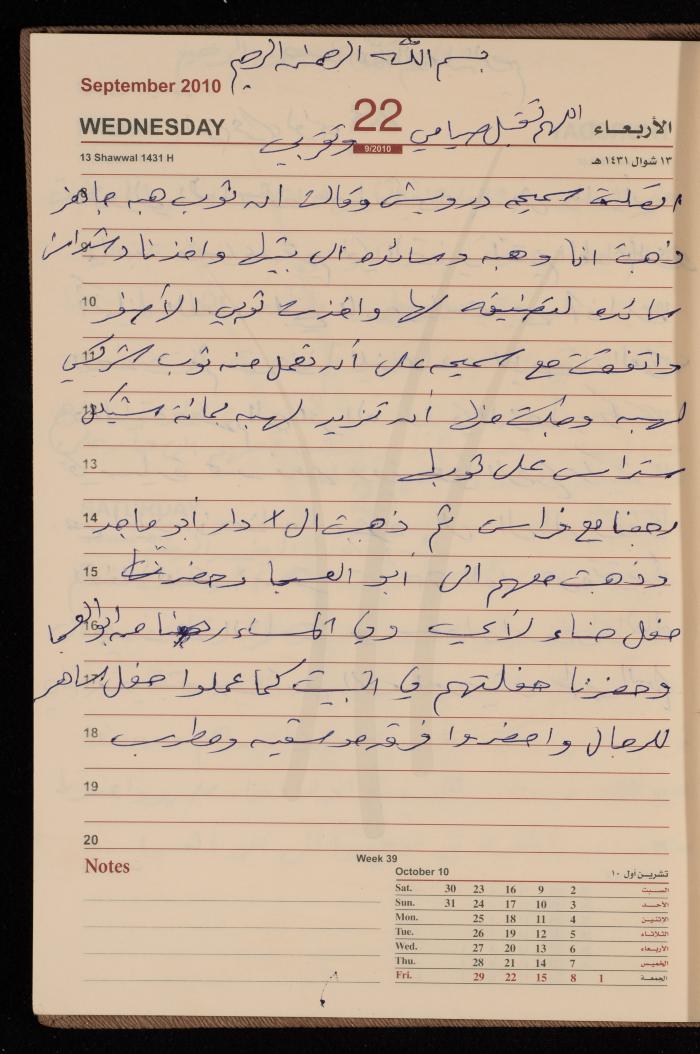 بسم الله الرحمن الرحيم
September 2010
WEDNESDAY 22 الأربعاء
اللهم تقبل صيامي وتقربي
13 Shawwal 1431 H 9/2010 ١٣ شوال ١٤٣١ هـ
اتصلت سميحه درويش وقالت ان ثوب هبه جاهز
ذهبت انا وهبه وسائده الى بيتها واخذنا
10 سائده لتضيفه لها واخذت ثوبي الأصفر
11 واتفقت مع سميحه على أن تعمل منه ثوب شركسي
12 لهبه وطلبت مني أن تزيد لهبه مائة شيكل
13 ستراس على ثوبها
14 رجعنا مع فراس ثم ذهبت الى دار أبو ماجد
15 وذهبت معهم الى أبو العسجا وحضرنا
16 حفل حناء لأي وفي المساء رجعنا من ابو العسجا
وحضرنا حفلتهم في البيت كما عملوا حفل ساهر
18 للرجال واحضروا فرقه موسقيه ومطرب
19
20
Notes
Week 39
October 10 تشرين أول ١٠
Sat. 30 23 16 9 2 السبت
Sun. 31 24 17 10 3 الأحد
Mon. 25 18 11 4 الإثنين
Tue. 26 19 12 5 الثلاثاء
Wed. 27 20 13 6 الأربعاء
Thu. 28 21 14 7 الخميس
Fri. 29 22 15 8 1 الجمعة